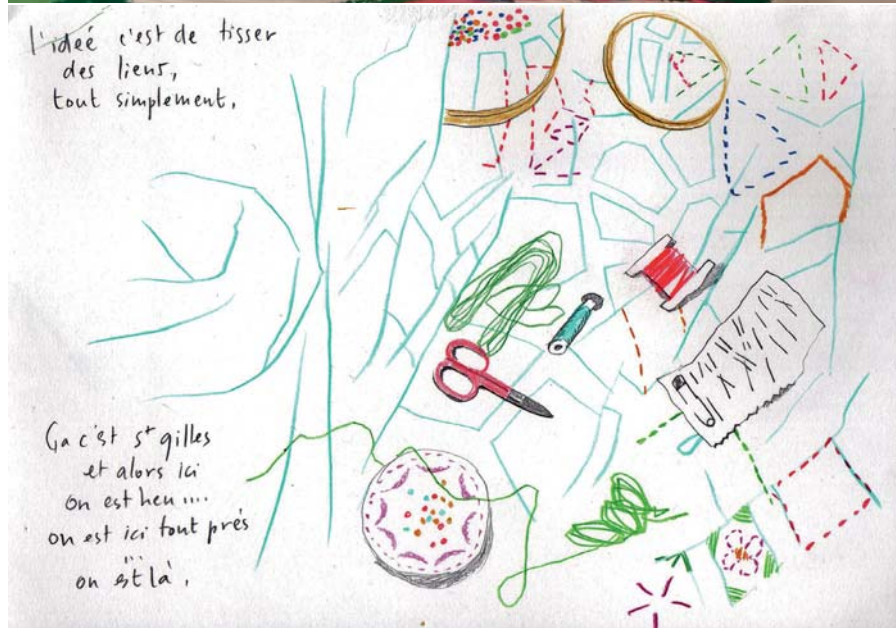 l'ideé c'est de tisser
des liens,
tout simplement.
Ga c'est st gilles
et alors ici
on est heu ....
on est ici tout prés
...
on est là.